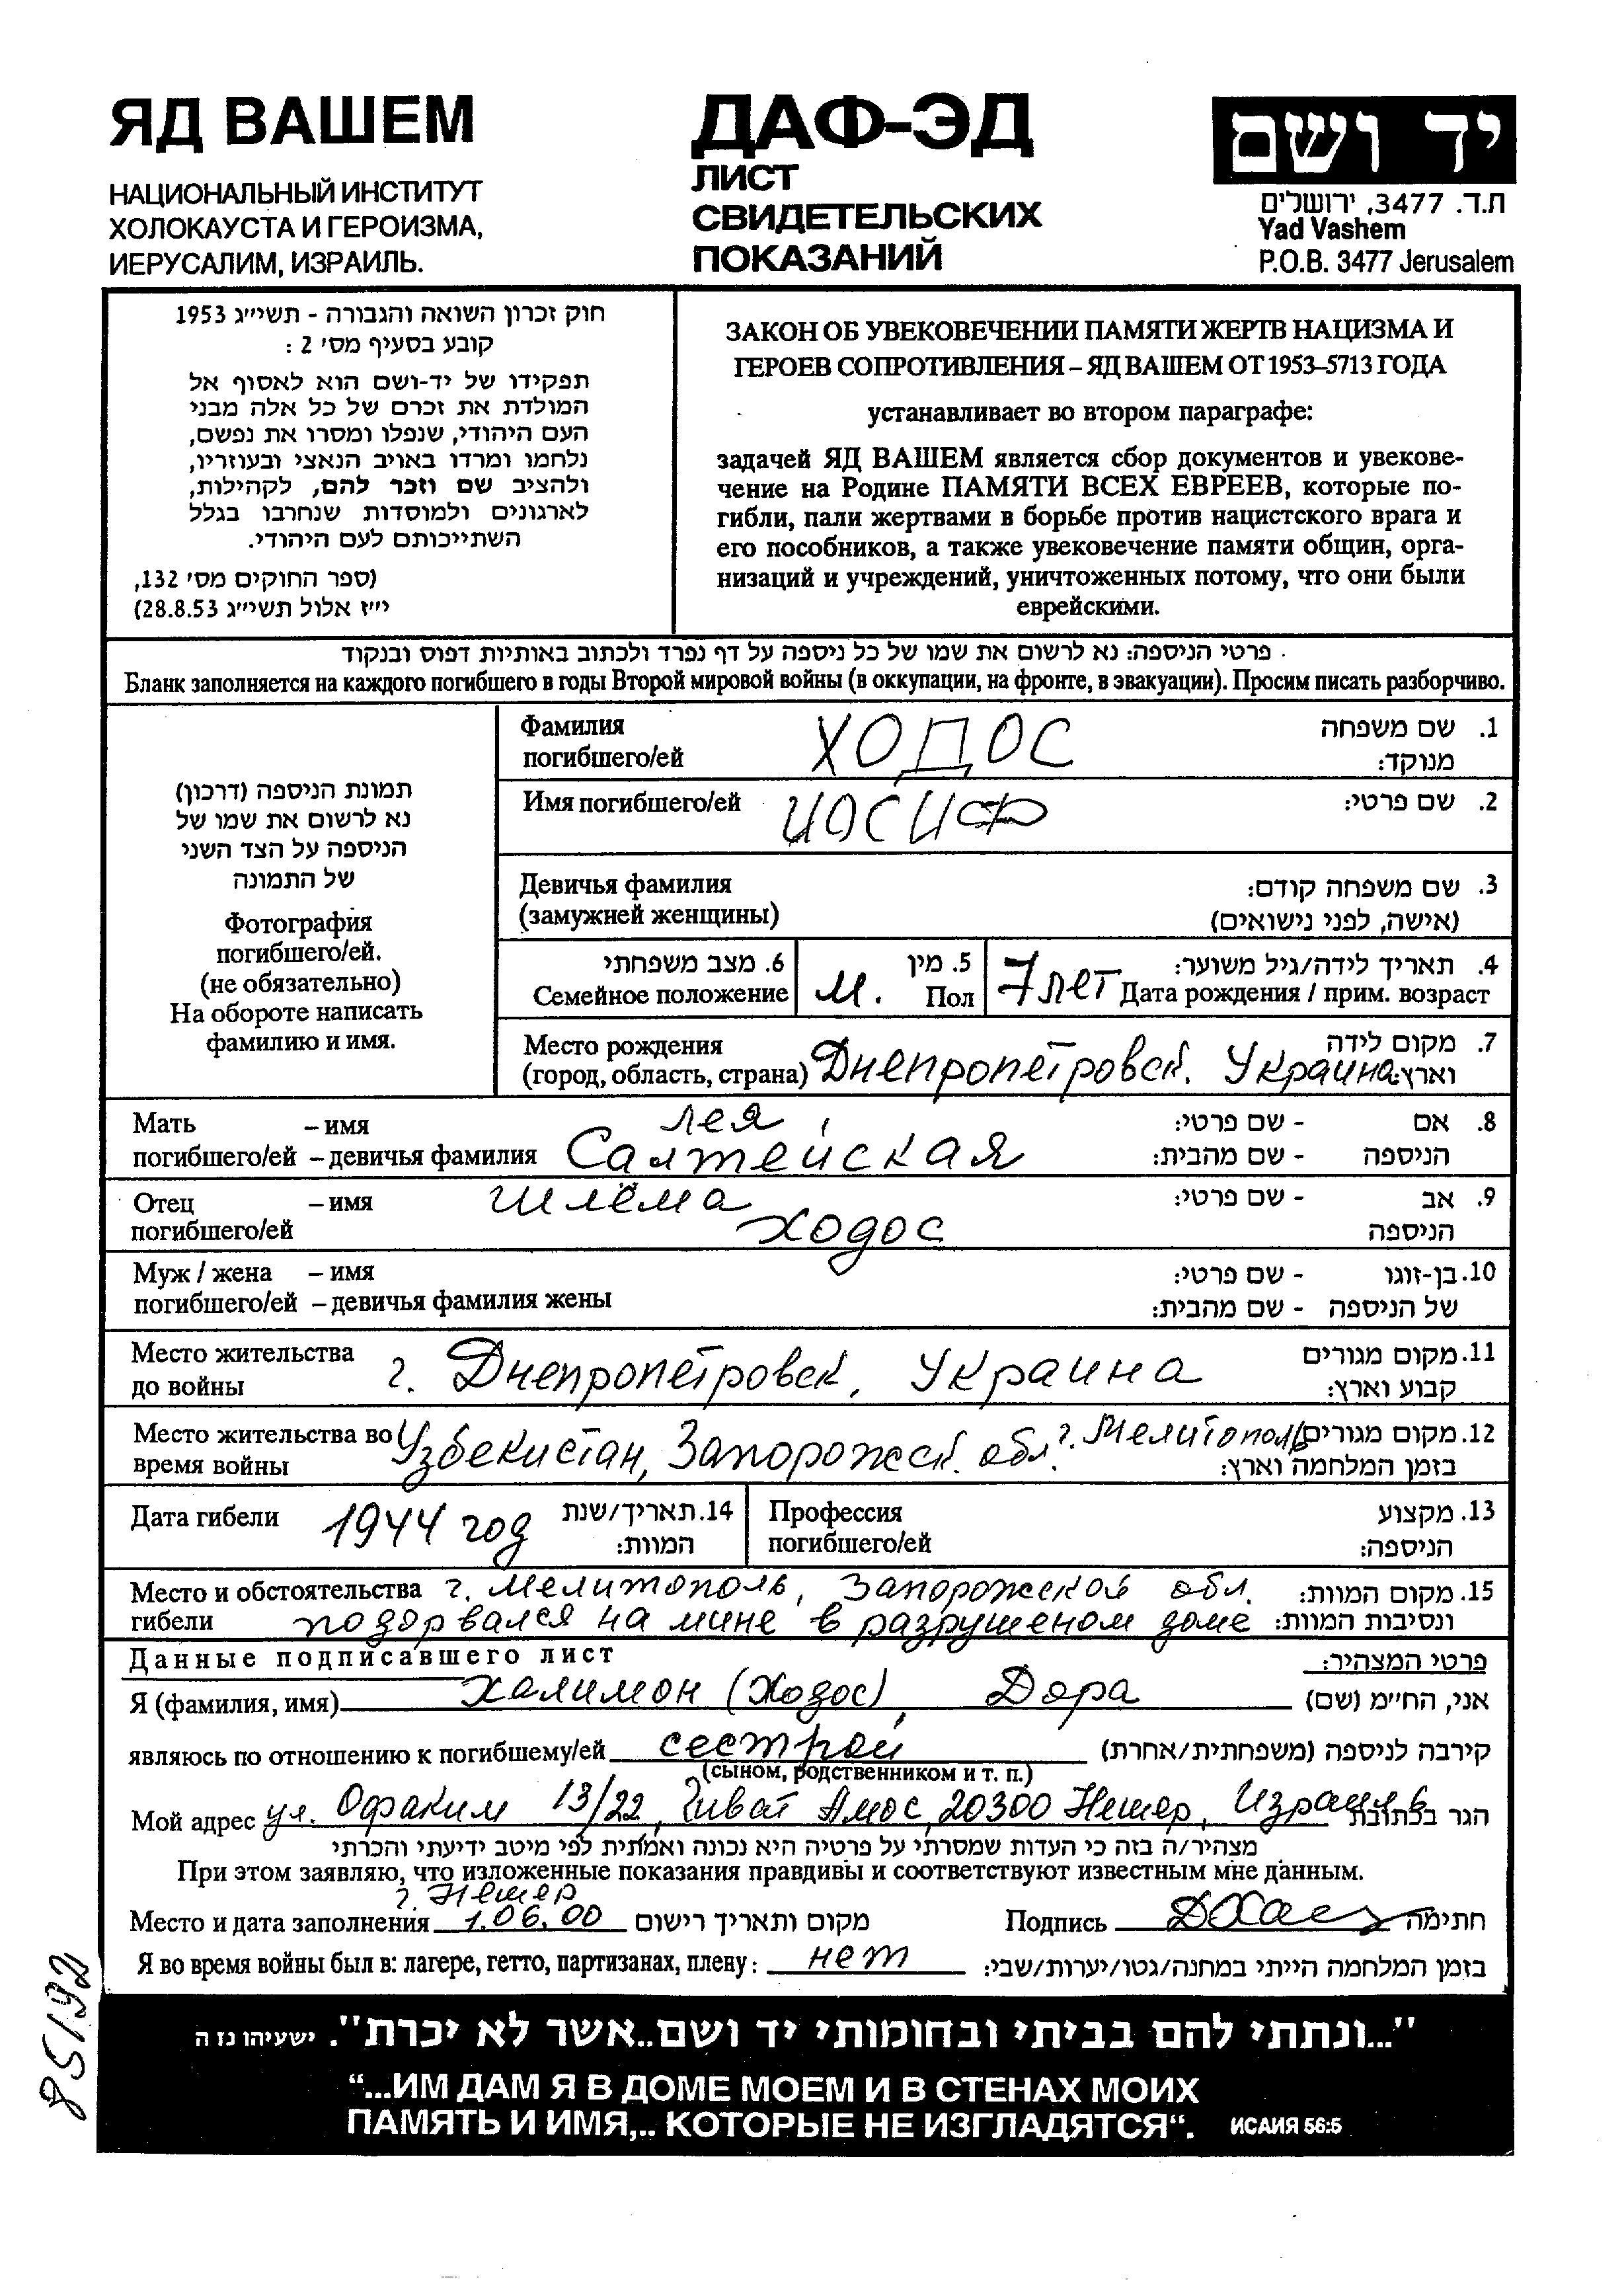 ЯД ВАШЕМ
НАЦИОНАЛЬНЫЙ ИНСТИТУТ
ХОЛОКАУСТА И ГЕРОИЗМА,
ИЕРУСАЛИМ, ИЗРАИЛЬ.
ДАФ-ЭД
ЛИСТ
СВИДЕТЕЛЬСКИХ
ПОКАЗАНИЙ
יד ושם
ת.ד. 3477, ירושלים
Yad Vashem
P.O.B. 3477 Jerusalem
חוק זכרון השואה והגבורה - תשי״ג 1953
קובע בסעיף מס׳ 2 :
תפקידו של יד-ושם הוא לאסוף אל
המולדת את זכרם של כל אלה מבני
העם היהודי, שנפלו ומסרו את נפשם,
נלחמו ומרדו באויב הנאצי ובעוזריו,
ולהציב שם וזכר להם, לקהילות,
לארגונים ולמוסדות שנחרבו בגלל
השתייכותם לעם היהודי.
(ספר החוקים מס׳ 132,
י״ז אלול תשי״ג 28.8.53)
ЗАКОН ОБ УВЕКОВЕЧЕНИИ ПАМЯТИ ЖЕРТВ НАЦИЗМА И
ГЕРОЕВ СОПРОТИВЛЕНИЯ – ЯД ВАШЕМ ОТ 1953–5713 ГОДА
устанавливает во втором параграфе:
задачей ЯД ВАШЕМ является сбор документов и увекове-
чение на Родине ПАМЯТИ ВСЕХ ЕВРЕЕВ, которые по-
гибли, пали жертвами в борьбе против нацистского врага и
его пособников, а также увековечение памяти общин, орга-
низаций и учреждений, уничтоженных потому, что они были
еврейскими.
פרטי הניספה: נא לרשום את שמו של כל ניספה על דף נפרד ולכתוב באותיות דפוס ובנקוד
Бланк заполняется на каждого погибшего в годы Второй мировой войны (в оккупации, на фронте, в эвакуации). Просим писать разборчиво.
תמונת הניספה (דרכון)
נא לרשום את שמו של
הניספה על הצד השני
של התמונה
Фотография
погибшего/ей.
(не обязательно)
На обороте написать
фамилию и имя.
Фамилия ХОДОС 1. שם משפחה
погибшего/ей מנוקד:
Имя погибшего/ей ИОСИФ 2. שם פרטי:
Девичья фамилия 3. שם משפחה קודם:
(замужней женщины) (אישה, לפני נישואים)
6. מצב משפחתי 5. מין 4. תאריך לידה/גיל משוער:
Семейное положение м. Пол 7 лет Дата рождения / прим. возраст
Место рождения 7. מקום לידה
(город, область, страна) Днепропетровск. Украина וארץ:
Мать – имя Лея, 8. אם - שם פרטי:
погибшего/ей – девичья фамилия Салтейская הניספה - שם מהבית:
Отец – имя Шлёма 9. אב - שם פרטי:
погибшего/ей Ходос הניספה
Муж / жена – имя 10. בן-זוגו - שם פרטי:
погибшего/ей – девичья фамилия жены של הניספה - שם מהבית:
Место жительства г. Днепропетровск, Украина 11. מקום מגורים
до войны קבוע וארץ:
Место жительства во Узбекистан, Запорожск. обл. г. Мелитополь 12. מקום מגורים
время войны בזמן המלחמה וארץ:
Дата гибели 1944 год 14. תאריך/שנת
המוות:
Профессия 13. מקצוע
погибшего/ей הניספה:
Место и обстоятельства г. Мелитополь, Запорожской обл. 15. מקום המוות:
гибели подорвался на мине в разрушеном доме ונסיבות המוות:
Данные подписавшего лист פרטי המצהיר:
Я (фамилия, имя) Халимон (Ходос), Дора אני, החי״מ (שם)
являюсь по отношению к погибшему/ей сестрой קירבה לניספה (משפחתית/אחרת)
(сыном, родственником и т. п.)
Мой адрес ул. Офаким 13/22, Гиват Амос, 20300 Нешер, Израиль הגר בכתובת
מצהיר/ה בזה כי העדות שמסרתי על פרטיה היא נכונה ואמתית לפי מיטב ידיעתי והכרתי
При этом заявляю, что изложенные показания правдивы и соответствуют известным мне данным.
г. Нешер
Место и дата заполнения 1.06.00 מקום ותאריך רישום Подпись חתימה
Я во время войны был в: лагере, гетто, партизанах, плену: нет בזמן המלחמה הייתי במחנה/גטו/יערות/שבי:
85192
"...ונתתי להם בביתי ובחומותי יד ושם..אשר לא יכרת". ישעיהו נז ה
“...ИМ ДАМ Я В ДОМЕ МОЕМ И В СТЕНАХ МОИХ
ПАМЯТЬ И ИМЯ,.. КОТОРЫЕ НЕ ИЗГЛАДЯТСЯ“. ИСАИЯ 56:5